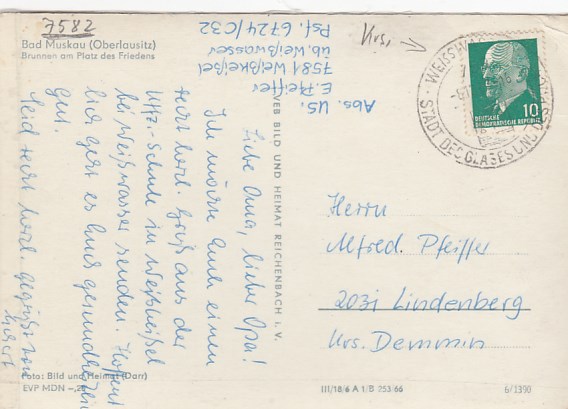 7582
Bad Muskau (Oberlausitz)
Brunnen am Platz des Friedens
Abs. US.
E. Pfeiffer
7581 Weißkeißel
üb. Weißwasser
Psf. 6724/C32
Krs.
WEISSWASSER
STADT DES GLASES UND DES
10
DEUTSCHE
DEMOKRATISCHE REPUBLIK
Liebe Oma, lieber Opa!
Ich möchte Euch einen
recht herzl. Gruß aus der
Uffz.-Schule in Weißkeißel
bei Weißwasser senden. Hoffent
lich geht es Euch gesundheitlich
gut.
Seid recht herzl. gegrüßt von
VEB BILD UND HEIMAT REICHENBACH i. V.
Herrn
Alfred Pfeiffer
2031 Lindenberg
Krs. Demmin
Foto: Bild und Heimat (Darr)
EVP MDN
III/18/6 A 1/B 253/66
6/1390